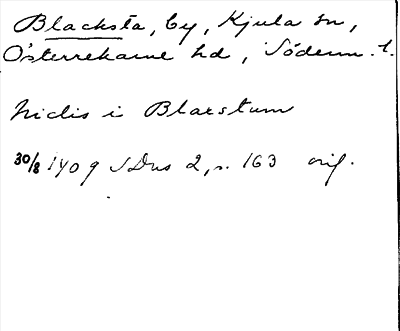 Blacksta, by, Kjula sn,
Österrekarne hd, Söderm. l.
Nielis i Blaxstum
30/8 1409 SDns 2, s. 163 orig.